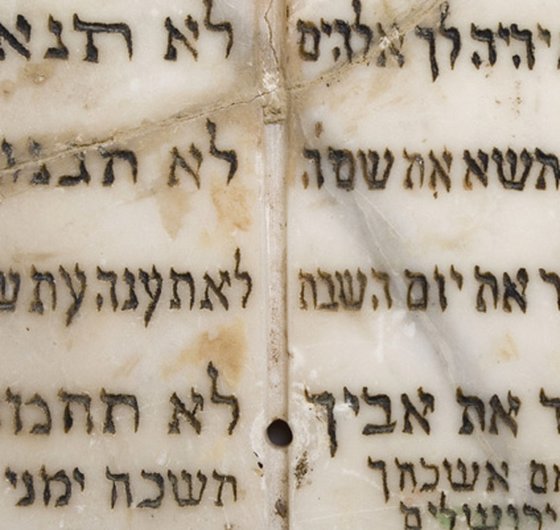 יהיה לך אלהים
תשא את שם ה
את יום השבת
את אביך
אם אשכחך
ירושלים
לא תנא
לא תגנו
לא תענה עת ש
לא תחמו
תשכח ימני